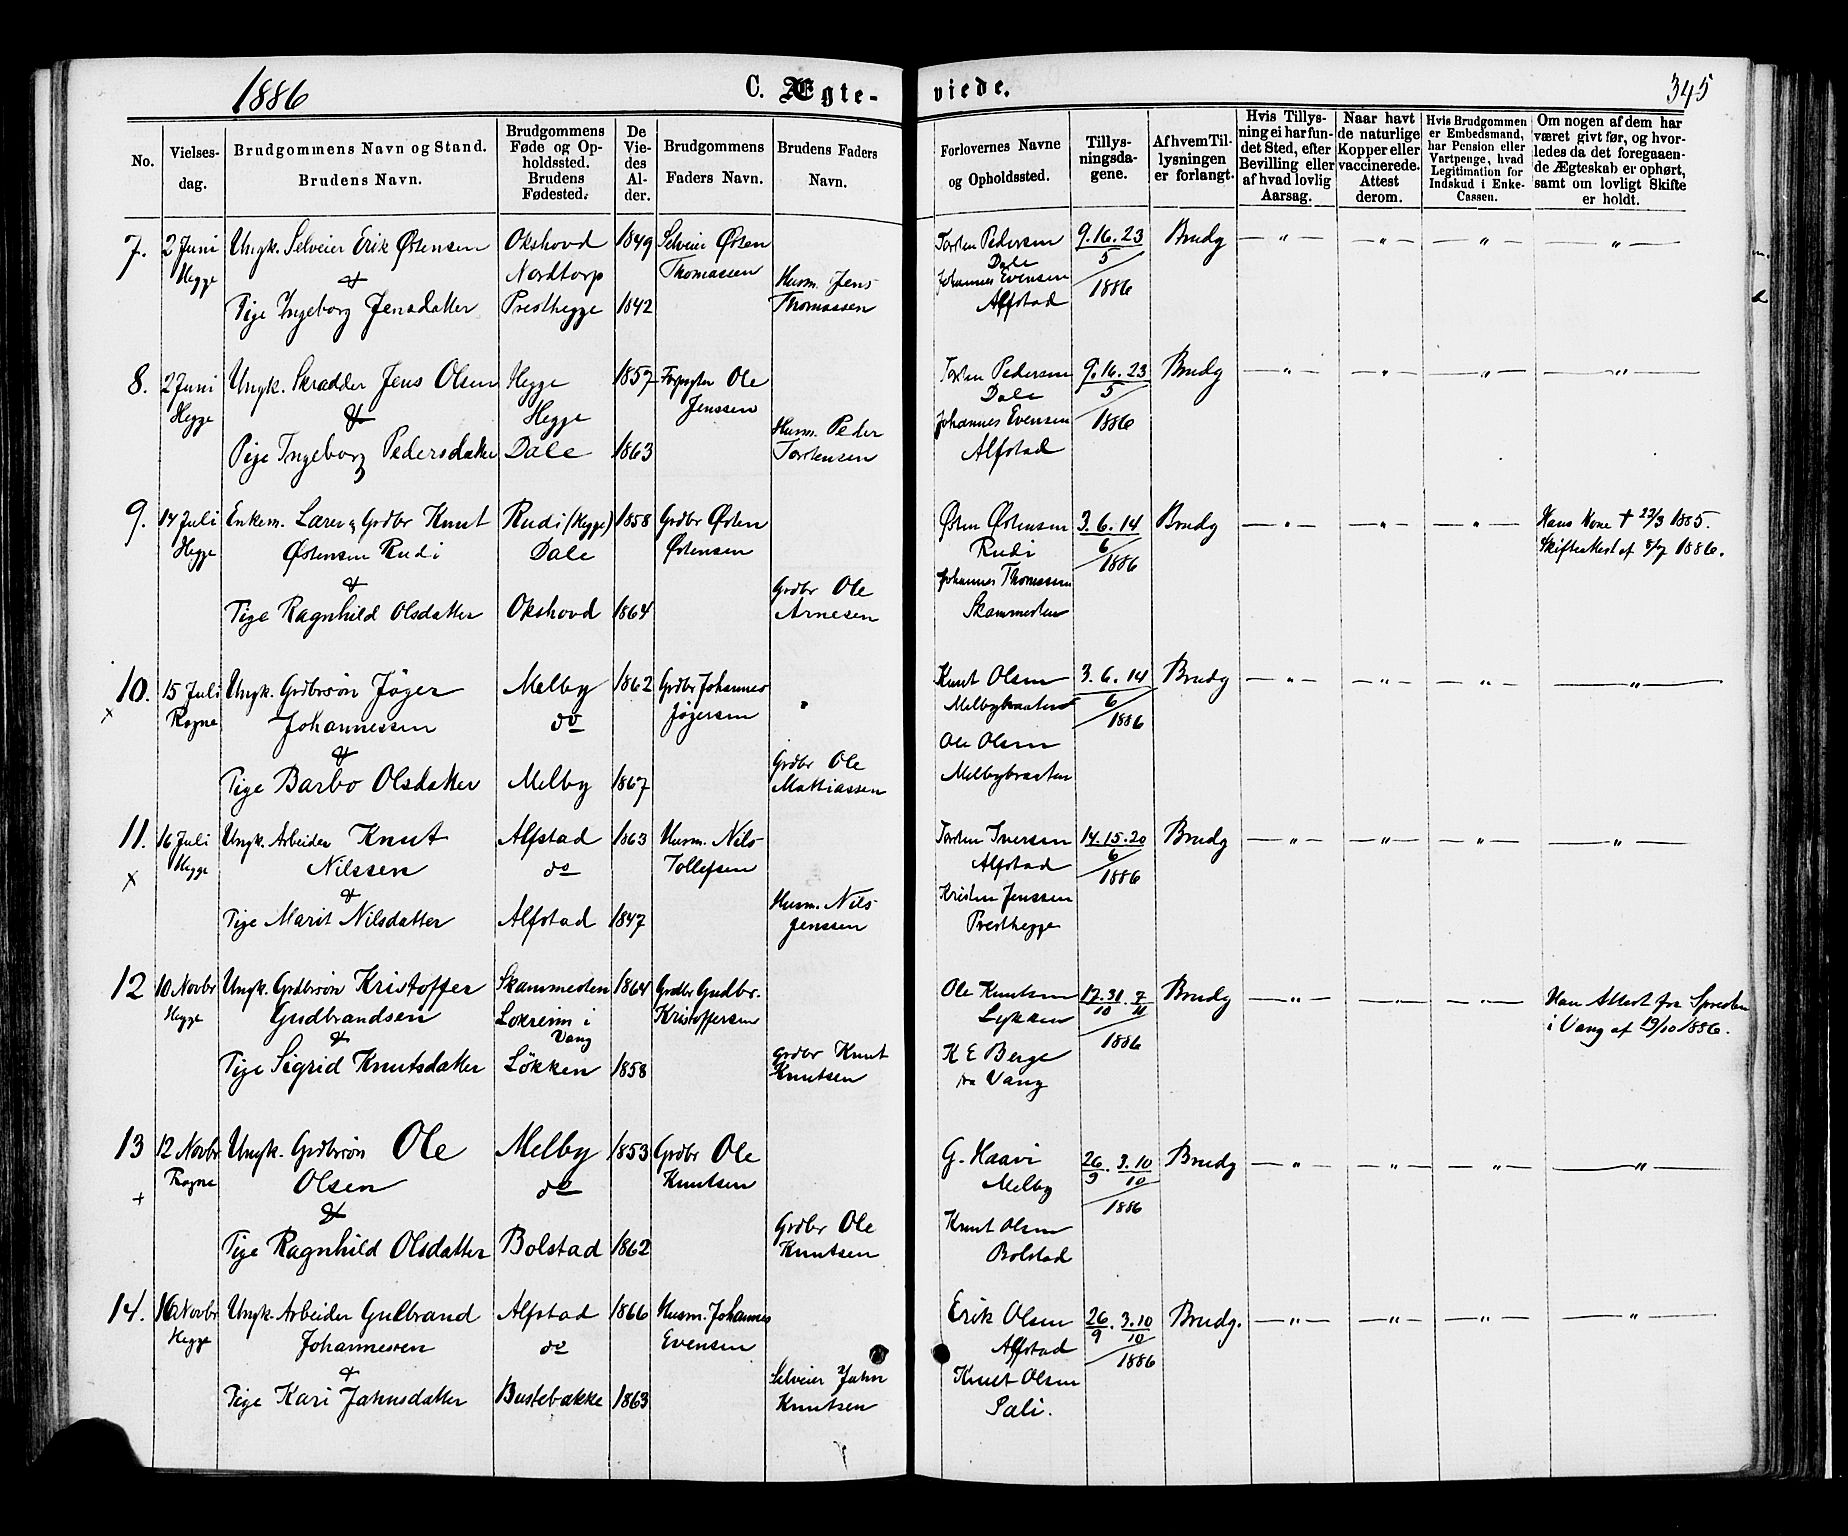 1886
C. Ægte-
viede.
345
No.
Vielses-
dag.
Brudgommens Navn og Stand.
Brudens Navn.
Brudgommens
Føde og Op-
holdssted.
Brudens
Fødested.
De
Vie-
des
Al-
der.
Brudgommens
Faders Navn.
Brudens Faders
Navn.
Forlovernes Navne
og Opholdssted.
Tillys-
ningsda-
gene.
Af hvem Til-
lysningen
er forlangt.
Hvis Tillys-
ning ei har fun-
det Sted, efter
Bevilling eller
af hvad lovlig
Aarsag.
Naar havt
de naturlige
Kopper eller
vaccinerede.
Attest
derom.
Hvis Brudgommen
er Embedsmand,
har Pension eller
Vartpenge, hvad
Legitimation for
Indskud i Enke-
Cassen.
Om nogen af dem har
været givt før, og hvor-
ledes da det foregaaen-
de Ægteskab er ophørt,
samt om lovligt Skifte
er holdt.
7. 2 Juni Ungk. Selveier Erik Østensen Okshovd 1849 Selveier Østen
Hegge & Nordtorp Thomassen Husm. Jens
Pige Ingeborg Jensdatter Presthegge 1842 Thomassen
Torsten Pedersen 9. 16. 23 Brudg — " — — " — — " — — " —
Dale 5
Johannes Evensen 1886
Alfstad
8. 2 Juni Ungk. Skrædder Jens Olsen Hegge 1857 Forpagter Ole
Hegge & Hegge Jenssen Husm. Peder
Pige Ingeborg Pedersdatter Dale 1863 Torstensen
Torsten Pedersen 9. 16. 23 Brudg — " — — " — — " — — " —
Dale 5
Johannes Evensen 1886
Alfstad
9. 14 Juli Enkem. Lærer og Grdbr Knut Rudi (Hegge) 1858 Grdbr Østen
Hegge Østensen Rudi Dale Østensen
& Grdbr Ole
Pige Ragnhild Olsdatter Okshovd 1864 Arnesen
Østen Østensen 3. 6. 14 Brudg — " — — " — — " — Hans Kone † 23/3 1885.
Rudi 6 Skifteattest af 8/7 1886.
Johannes Thomassen 1886
Skammesten
10. 15 Juli Ungk. Grdbrsön Jøger Melby 1862 Grdbr Johannes
x Rogne Johannessen do Jøgersen "
& Grdbr Ole
Pige Barbo Olsdatter Melby 1867 Mathiassen
Knut Olsen 3. 6. 14 Brudg — " — — " — — " — — " —
Melbybraaten 6
Ole Olsen 1886
Melbybraaten
11. 16 Juli Ungk. Arbeider Knut Alfstad 1863 Husm. Nils
x Hegge Nilssen do Tollefsen
& Husm. Nils
Pige Marit Nilsdatter Alfstad 1847 Jenssen
Torsten Iversen 14. 15. 20 Brudg — " — — " — — " — — " —
Alfstad 6
Kristen Jenssen 1886
Presthegge
12 10 Novbr Ungk. Grdbrsön Kristoffer Skammesten 1864 Grdbr Gudbr.
Hegge Gudbrandsen Lokreim i Vang Kristoffersen
& Grdbr Knut
Pige Sigrid Knutsdatter Løkken 1858 Knutsen
Ole Knutsen 17. 31/10. 7/11 Brudg — " — — " — — " — Hun Attest fra Spresten
Lykken 1886 i Vang af 19/10 1886.
K E Berge
fra Vang
13 12 Novbr Ungk. Grdbrsön Ole Melby 1853 Grdbr Ole
+ Rogne Olsen do Knutsen
& Grdbr Ole
Pige Ragnhild Olsdatter Bolstad 1862 Knutsen
G. Haavi 26/9. 3.10/10 Brudg — " — — " — — " — — " —
Melby 1886
Knut Olsen
Bolstad
14. 16 Novbr Ungk. Arbeider Gulbrand Alfstad 1866 Husm. Johannes
Hegge Johannesen do Evensen
& Selveier Jahn
Pige Kari Jahnsdatter Bustebakke 1863 Knutsen
Erik Olsen 26/9. 3.10/10 Brudg. — " — — " — — " — — " —
Alfstad 1886
Knut Olsen
Pali.